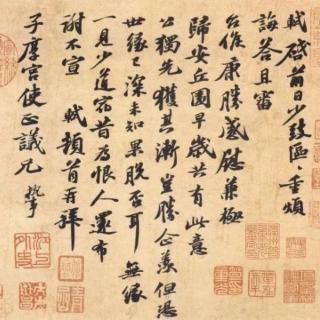 軾啟前日少致區區重煩
誨答且審
台候康勝感慰兼極
歸安丘園早歲共有此意
公獨先獲其漸豈勝企羨但恐
世緣已深未知果脫否耳無緣
一見少道宿昔為恨人還布
謝不宣 軾頓首再拜
子厚宮使正議兄 執事